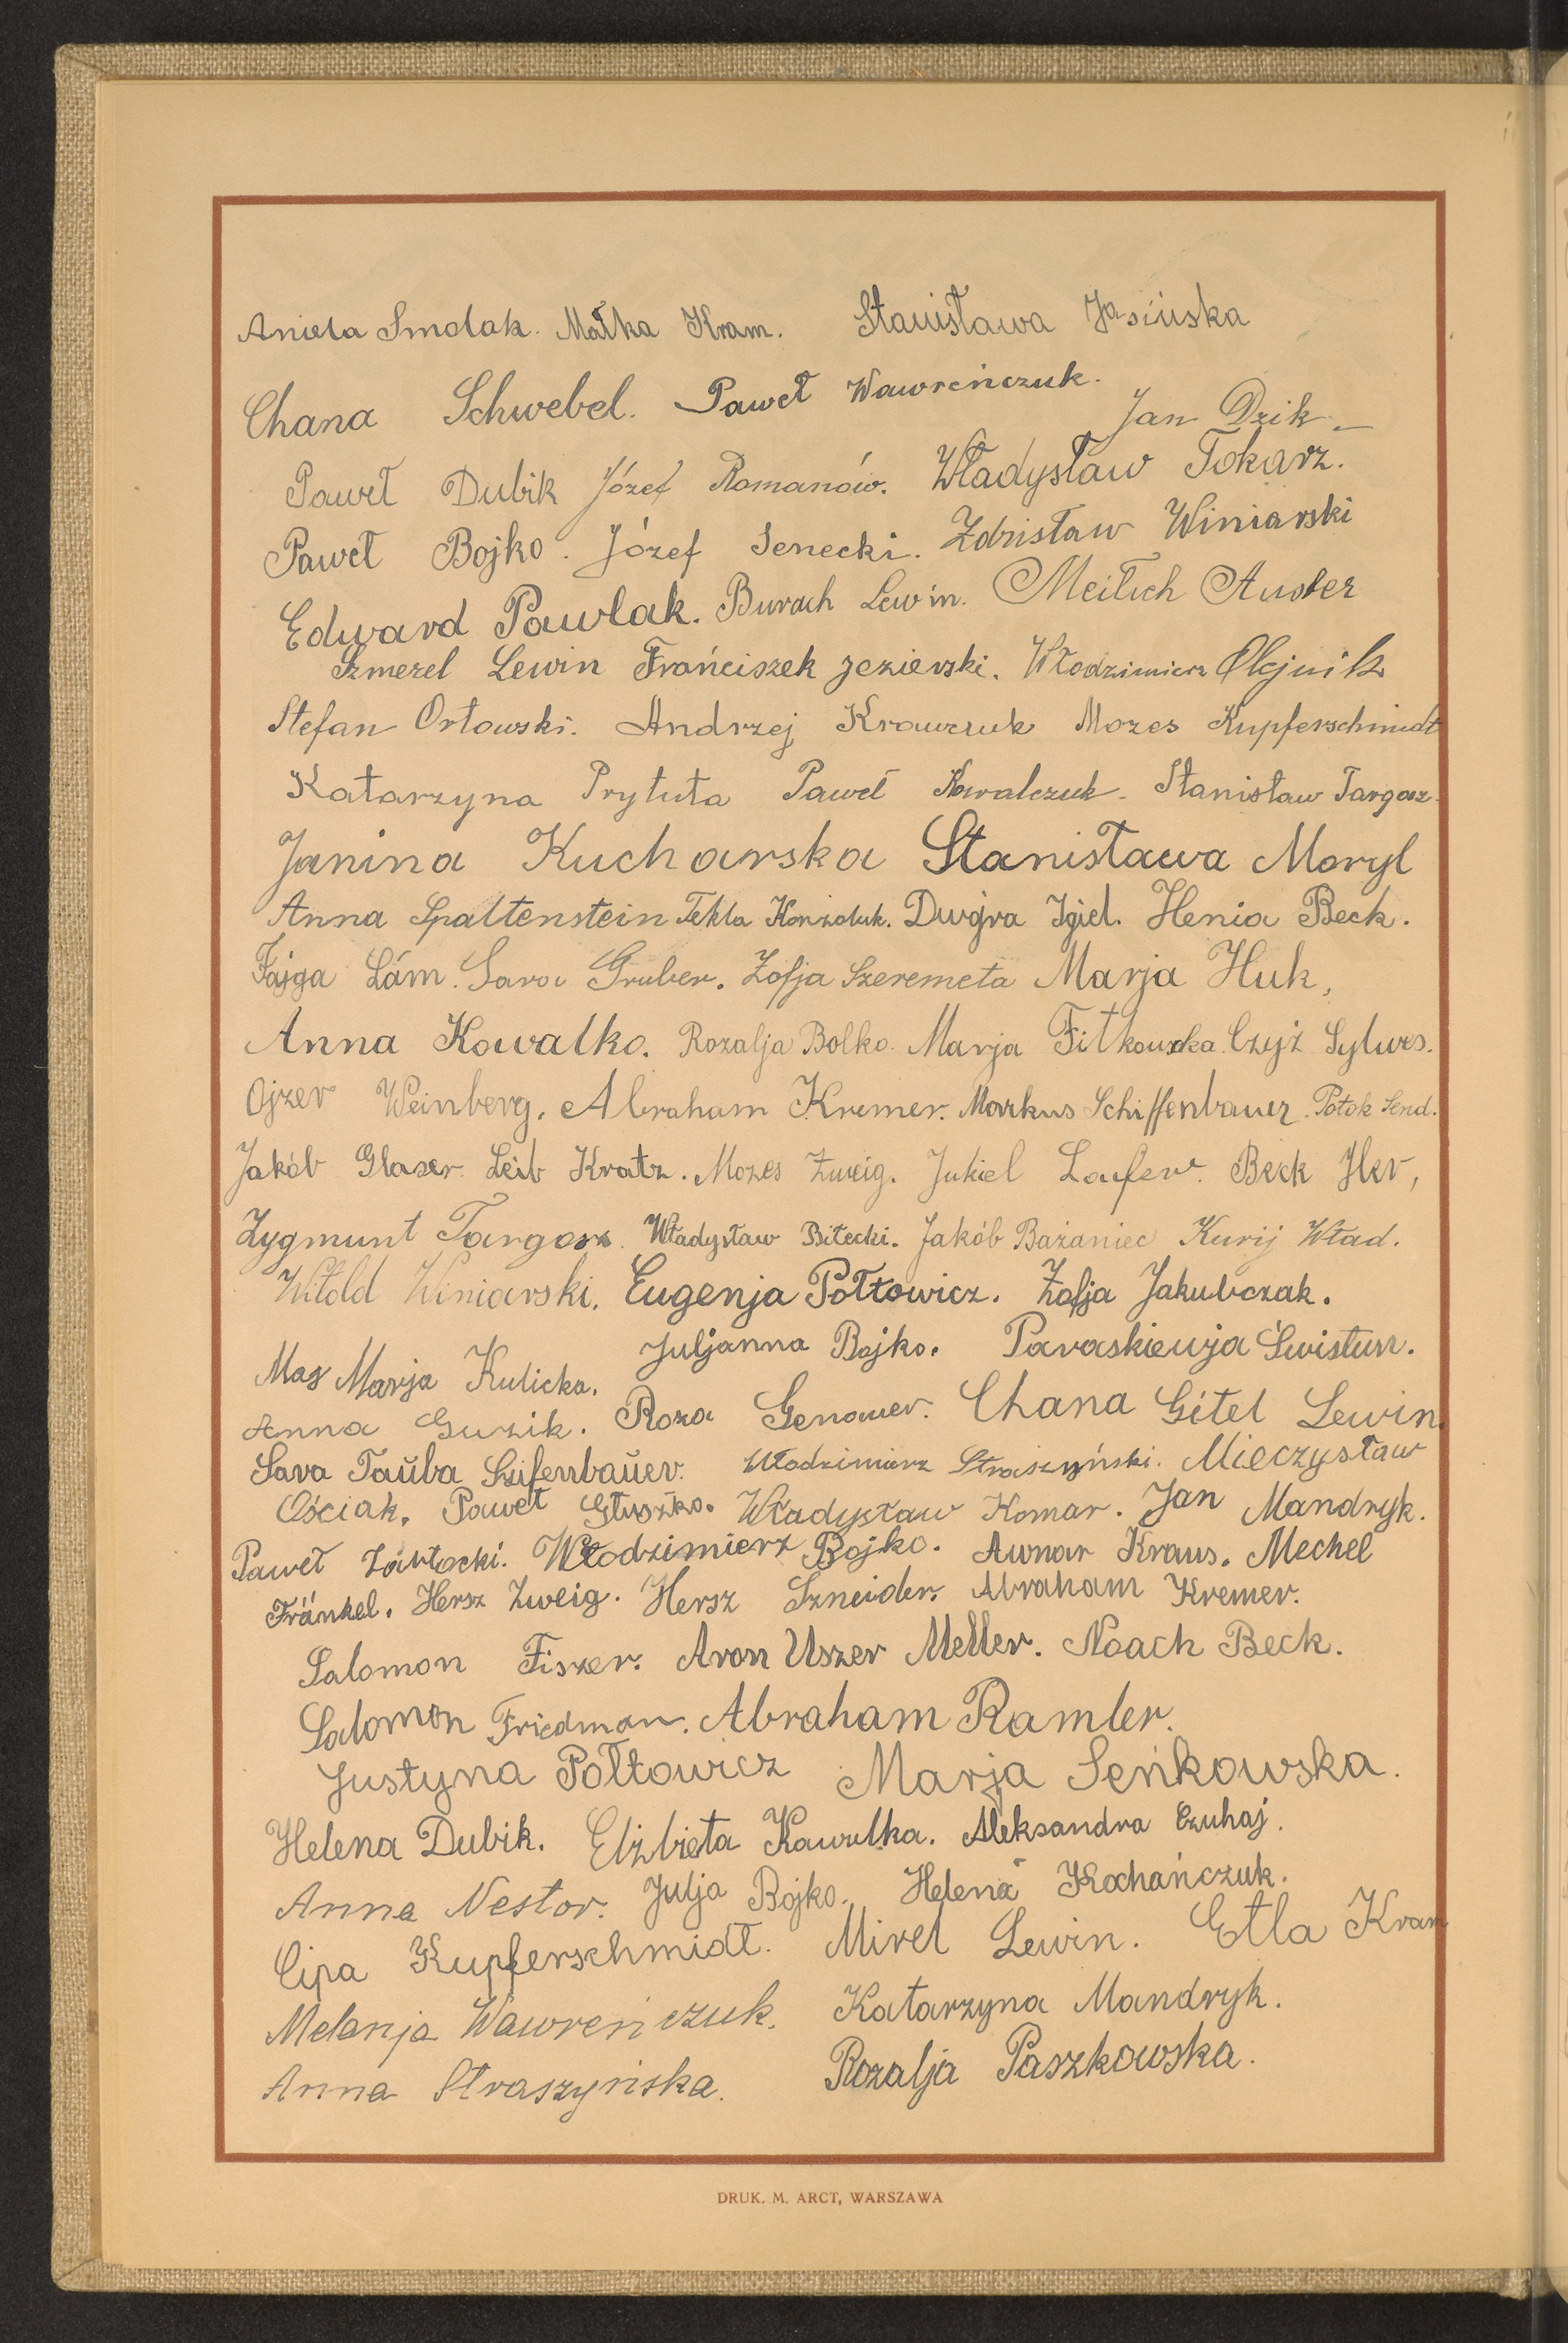 Aniela Smolak. Małka Kram. Stanisława Jasińska
Chana Schwebel. Paweł Wawreńczuk.
Jan Dzik.
Paweł Dubik Józef Romanów. Władysław Tokarz.
Paweł Bojko. Józef Senecki. Zdzisław Winiarski
Edward Pawlak. Burach Lewin. Meilech Auster
Szmerel Lewin Frańciszek Jezierski. Włodzimierz Olejnik
Stefan Orłowski. Andrzej Krawczuk Mozes Kupferschmidt
Katarzyna Prytuła Paweł Kowalczuk. Stanisław Targosz.
Janina Kucharska Stanisława Moryl
Anna Spaltenstein Tekla Dwojra Igiel. Henia Beck.
Fajga Lám. Sara Gruber. Zofja Szeremeta Marja Huk,
Anna Kowalko. Rozalja Bolko. Marja Fitkowska. Czyż Sylwes.
Ojzer Weinberg. Abraham Kremer. Markus Schiffenbauer. Potok Send.
Jakób Glaser. Leib Kratz. Mozes Zweig. Jukiel Laufer. Beck Her,
Zygmunt Targosz. Władysław Bilecki. Jakób Bażaniec Kurij Wład.
Witold Winiarski. Eugenja Połtowicz. Zofja Jakubczak.
Juljanna Bojko. Paraskiewja Świstun.
Mas Marja Kulicka.
Anna Guzik. Roza Genauer. Chana Gitel Lewin.
Sara Tauba Szifenbauer. Włodzimierz Straszyński. Mieczysław
Ościak. Paweł Głuszko. Władysław Komar. Jan Mandryk.
Paweł Zawłocki. Włodzimierz Bojko. Awnar Kraus. Mechel
Fränkel. Hersz Zweig. Hersz Szneider. Abraham Kremer.
Salomon Fiszer. Aron Uszer Meller. Noach Beck.
Salomon Friedman. Abraham Ramler.
Justyna Połtowicz Marja Seńkowska.
Helena Dubik. Elżbieta Kawulka. Aleksandra Czuhaj.
Anna Nestor. Julja Bojko. Helena Kochańczuk.
Cipa Kupferschmidt. Mirel Lewin. Etla Kram
Melanja Wawreńczuk. Katarzyna Mandryk.
Anna Straszyńska. Rozalja Paszkowska.
DRUK. M. ARCT, WARSZAWA